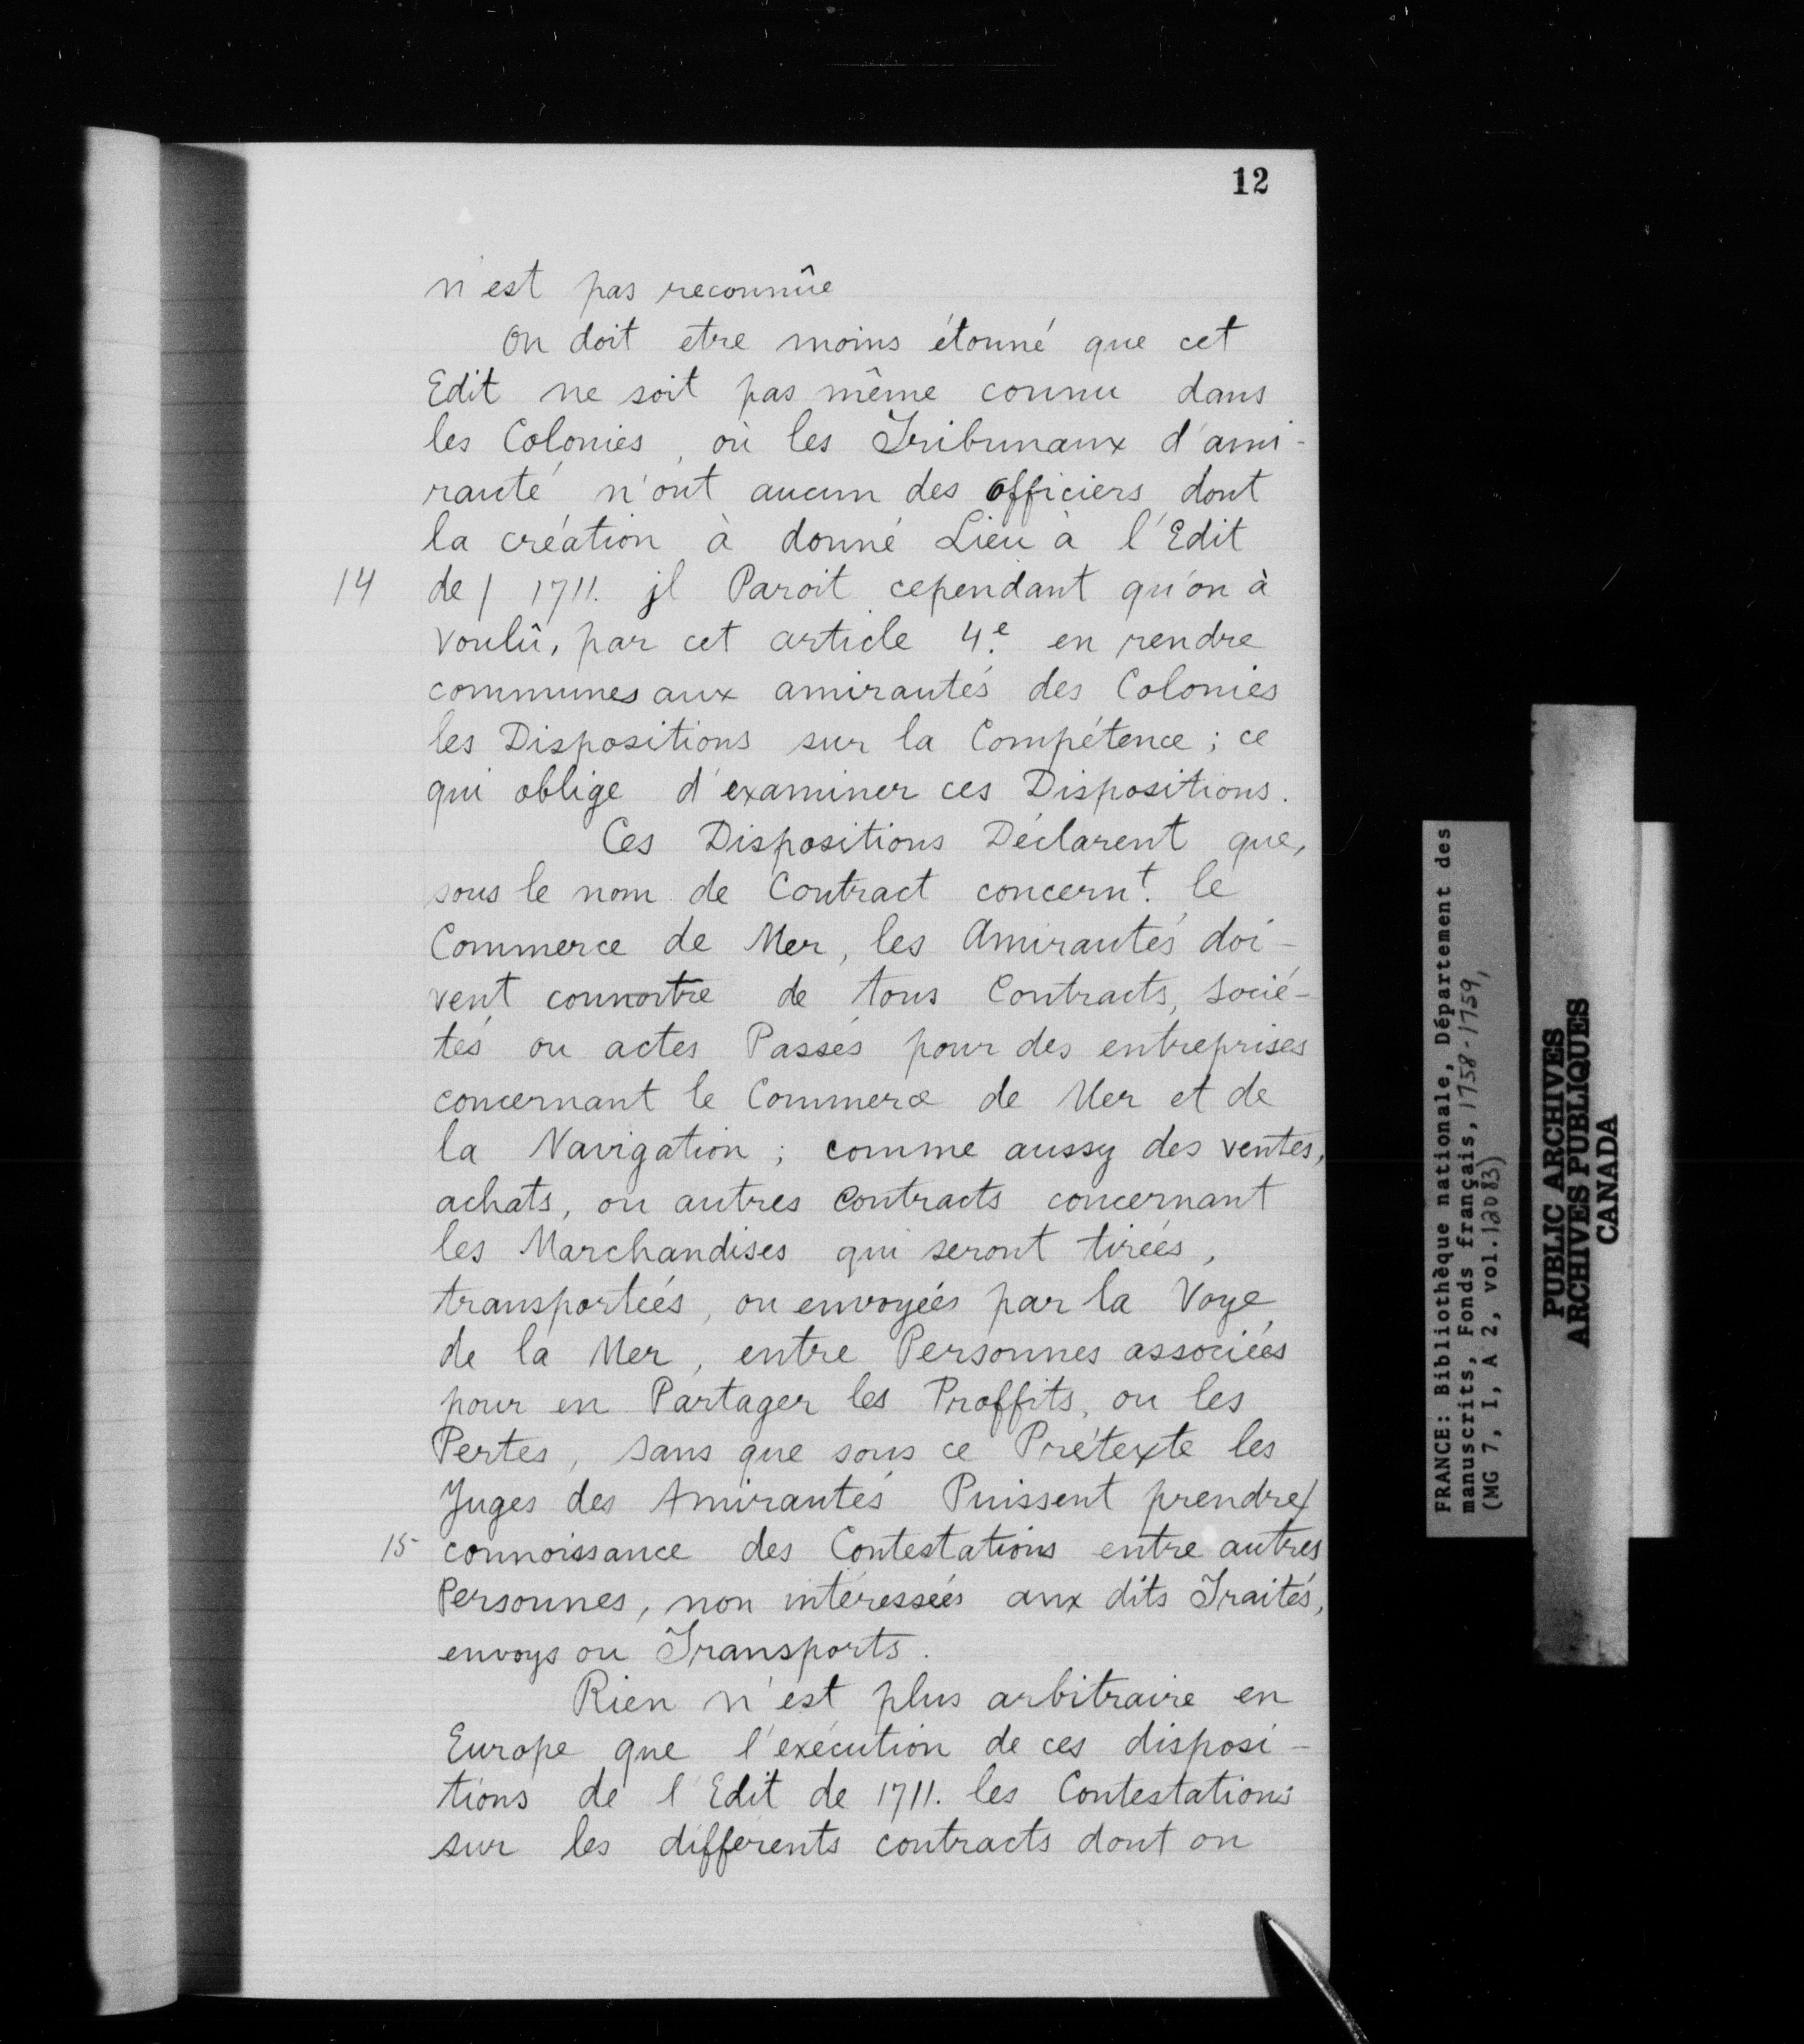 12
n'est pas reconnûe
On doit etre moins étonné que cet
Edit ne soit pas même connu dans
les Colonies, où les Tribunaux d'ami-
rauté n'ont aucun des officiers dont
la création à donné Lieu à l'Edit
14 de / 1711. jl Paroit cependant qu'on à
voulû, par cet article 4.e en rendre
communes aux amirautés des Colonies
les Dispositions sur la Compétence; ce
qui oblige d'examiner ces Dispositions.
Ces Dispositions Déclarent que,
sous le nom de Contract concern.t le
Commerce de Mer, les Amirautés doi-
vent connoitre de tous Contracts, socié-
tés ou actes Passés pour des entreprises
concernant le Commerce de Mer et de
la Navigation; comme aussy des ventes,
achats, ou autres contracts concernant
les Marchandises qui seront tirées,
transportées, ou envoyées par la Voye
de la Mer, entre Personnes associées
pour en Partager les Proffits, ou les
Pertes, sans que sous ce Prétexte les
Juges des Amirautés Puissent prendre/
15 connoissance des Contestations entre autres
Personnes, non intéressées aux dits Traités,
envoys ou Transports.
Rien n'est plus arbitraire en
Europe que l'exécution de ces disposi-
tions de l'Edit de 1711. les Contestations
sur les différents contracts dont on
FRANCE: Bibliothèque nationale, Département des
manuscrits, Fonds français, 1758-1759,
(MG 7, I, A 2, vol. 12083)
PUBLIC ARCHIVES
ARCHIVES PUBLIQUES
CANADA